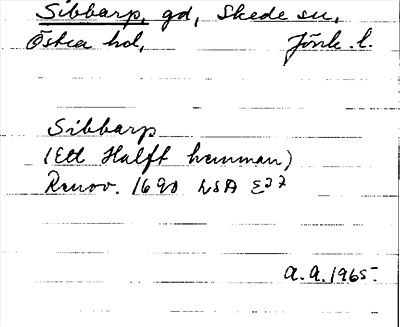 Sibbarp, gd, Skede sn,
Östra hd, Jönk. l.
Sibbarp
(Ett Halft hemman)
Renov. 1690 LSA E27
A.A. 1965.